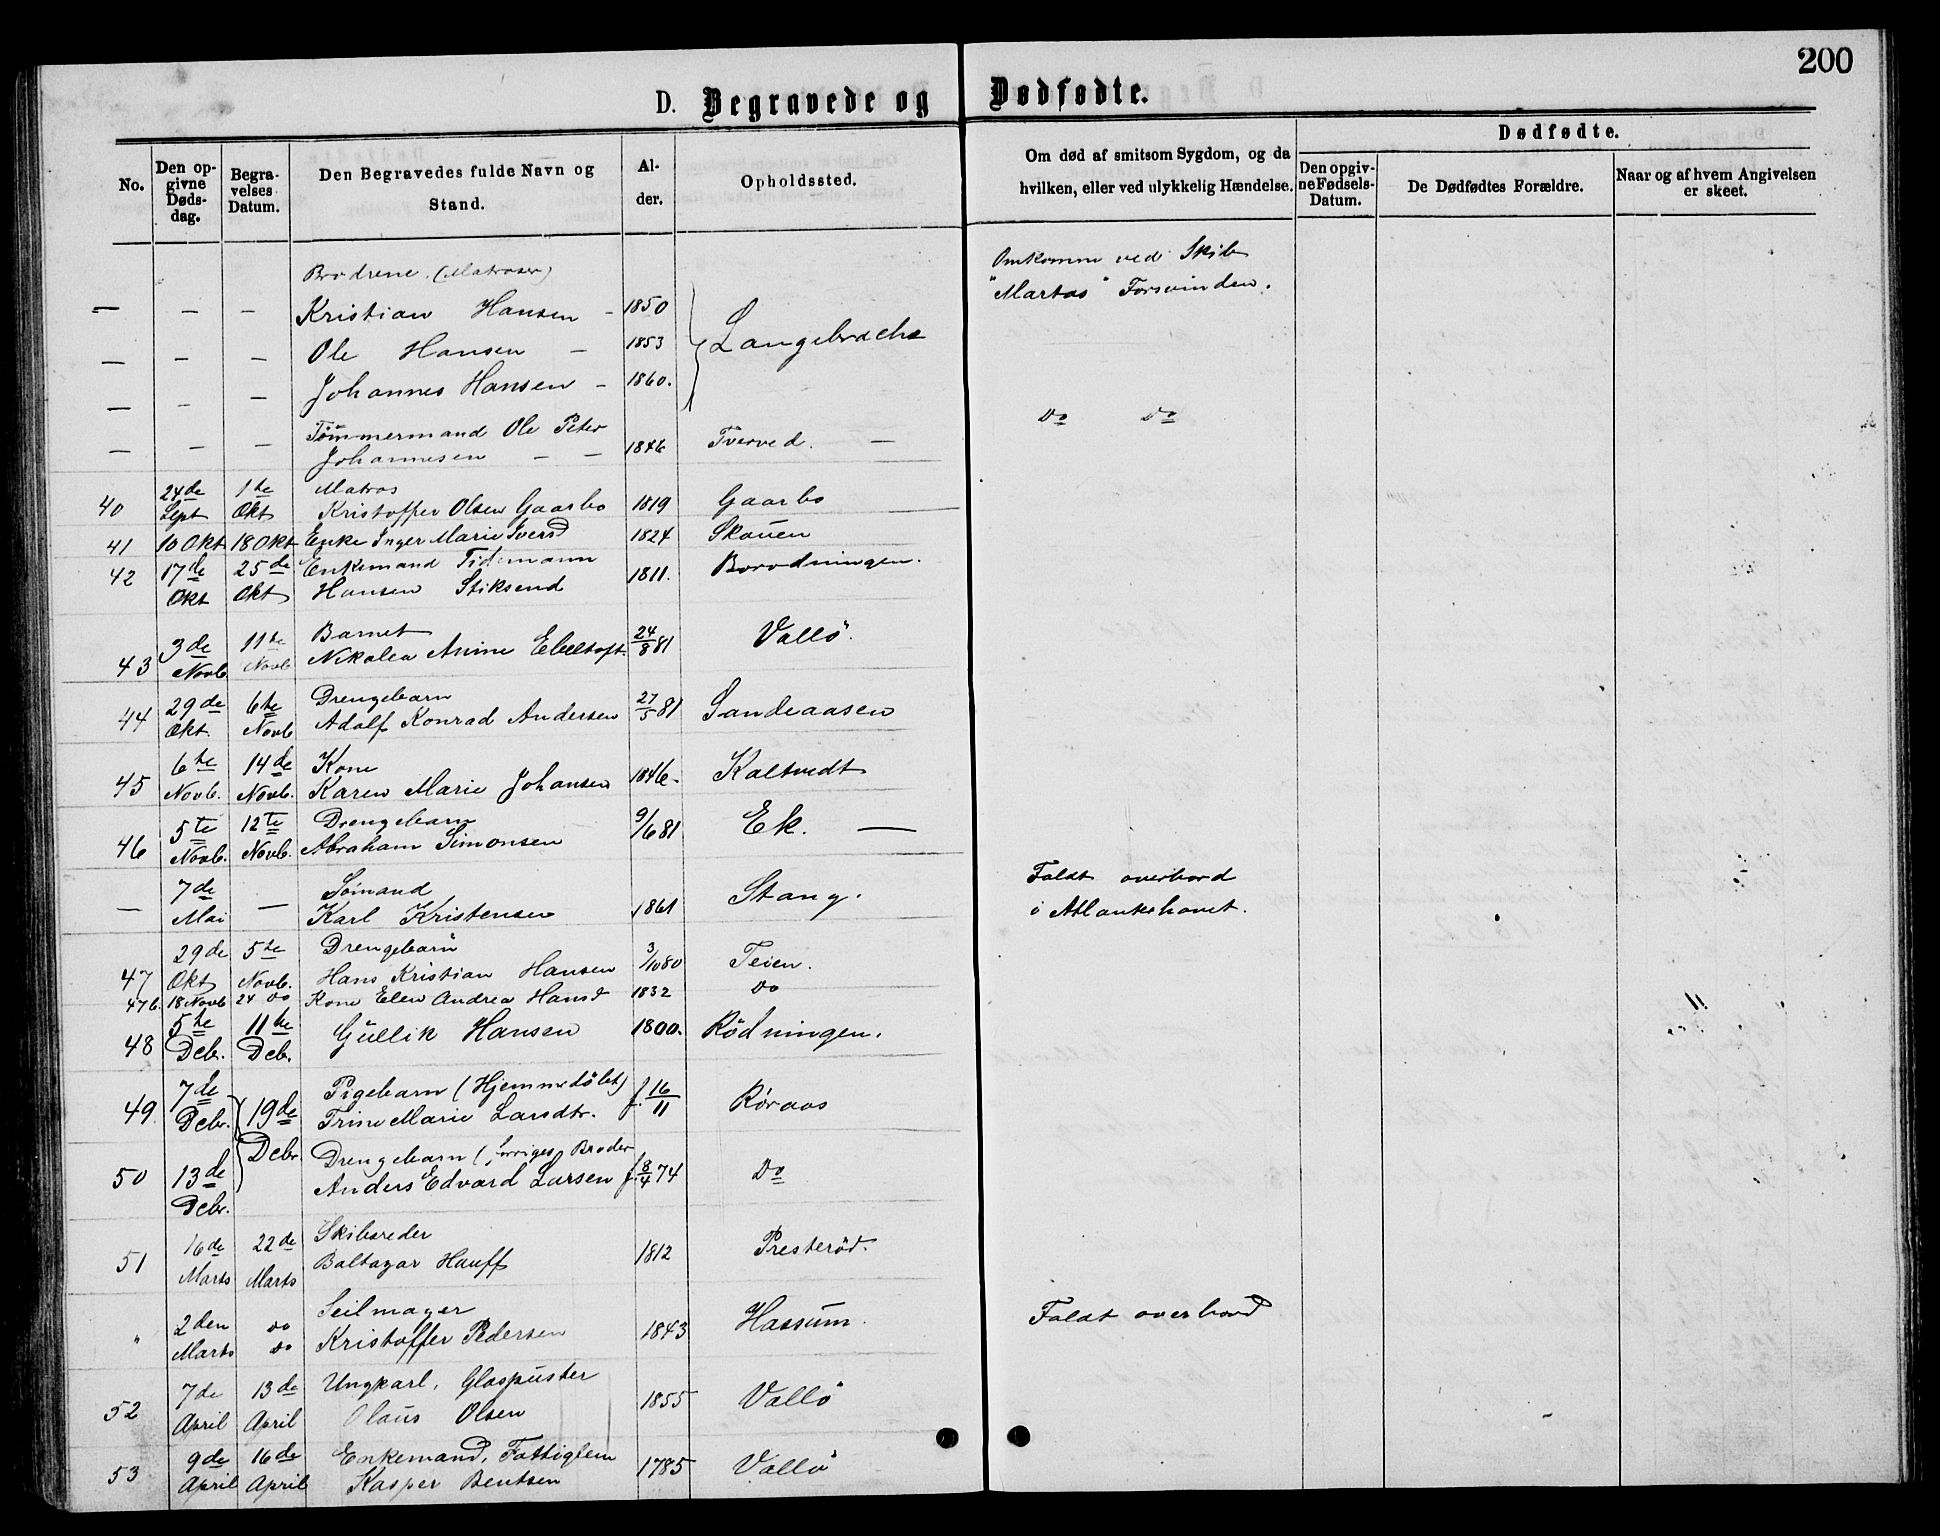 200
D. Begravede og Dødfødte.
No.
Den opgivne Dødsdag.
Begravelses Datum.
Den Begravedes fulde Navn og Stand.
Alder.
Opholdssted.
Om død af smitsom Sygdom, og da hvilken, eller ved ulykkelig Hændelse.
Dødfødte.
Den opgivne Fødsels-Datum.
De Dødfødtes Forældre.
Naar og af hvem Angivelsen er skeet.
Brødrene (Matroser) Omkomne ved Skib
— — — Kristian Hansen – 1850 "Martas" Forsvinden.
— — — Ole Hansen — 1853 Langebrække
— — — Johannes Hansen – 1860.
Tømmermand Ole Peter Do Do
— — — Johannesen — — 1846 Tverved. —
24de 1te Matros
40 Sept Okt Kristoffer Olsen Gaarbo 1819 Gaarbo
41 10 Okt 18 Okt Enke Inger Marie Iversd 1824 Skouen
42 17de 25de Enkemand Tidemann 1811. Borodningen.
Okt Okt Hansen Stiksrud
3de 11te Barnet 24/8 81 Vallö.
43 Novb. Novb Nikolea Anine Ebeltoft
29de 6te Drengebarn 27/5 81 Sandeaasen
44 Okt. Novb Adolf Konrad Andersen
6te 14de Kone
45 Novb. Novb. Karen Marie Johansen 1846. Kaltvedt
5te 12te Drengebarn 9/6 81 Ek. —
46 Novb. Novb. Abraham Simonsen
7de Sømand Stang. Faldt overbord
— Mai — Karl Kristensen 1861 i Atlanterhavet.
29de 5te Drengebarn
47 Okt Novb. Hans Kristian Hansen 3/10 80 Teien.
47b. 18 Novb 24 do Kone Elen Andrea Hansd 1832 Do
5te 11te Gullik Hansen 1800. Rödningen.
48 Decb. Decb.
7de Pigebarn (Hjemmedöbt)
49. Decb. 19de Trine Marie Larsdtr. f. 16/11 Röraas
Decbr Drengebarn (forriges Broder
50 13de Anders Edvard Larsen f. 8/4 74 Do
Decbr.
16de 22de Skibsreder
51 Marts Marts Baltazar Hauff 1812 Presteröd.
2den do Seilmager Hassum. Faldt overbord
" Marts do Kristoffer Pedersen 1843
7de 13de Ungkarl, Glaspuster
52 April April Olaus Olsen 1855 Vallö
9de 16de Enkemand, Fattiglem
53 April April Kasper Bentsen 1785 Vallö